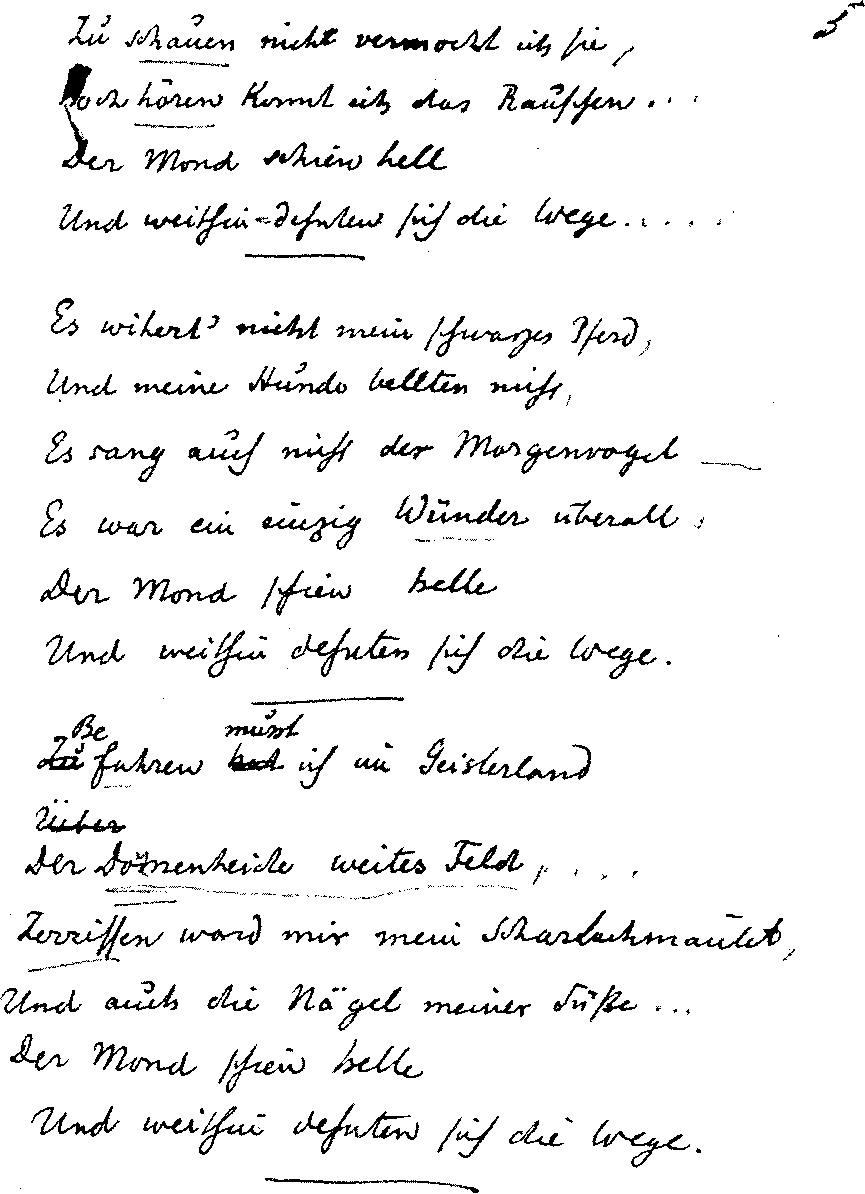 5
Zu schauen nicht vermocht ich sie,
Doch hören konnt ich das Rauschen...
Der Mond schien hell
Und weithin dehnten sich die Wege.....
Es wihert' nicht mein schwarzes Pferd,
Und meine Hunde bellten nicht,
Es sang auch nicht der Morgenvogel —
Es war ein einzig Wunder überall;
Der Mond schien helle
Und weithin dehnten sich die Wege.
Be musst
Zu fahren hat ich im Geisterland
Über
Der Dornenheide weites Feld,....
Zerrissen ward mir mein Scharlachmantel,
Und auch die Nägel meiner Füße...
Der Mond schien helle
Und weithin dehnten sich die Wege.